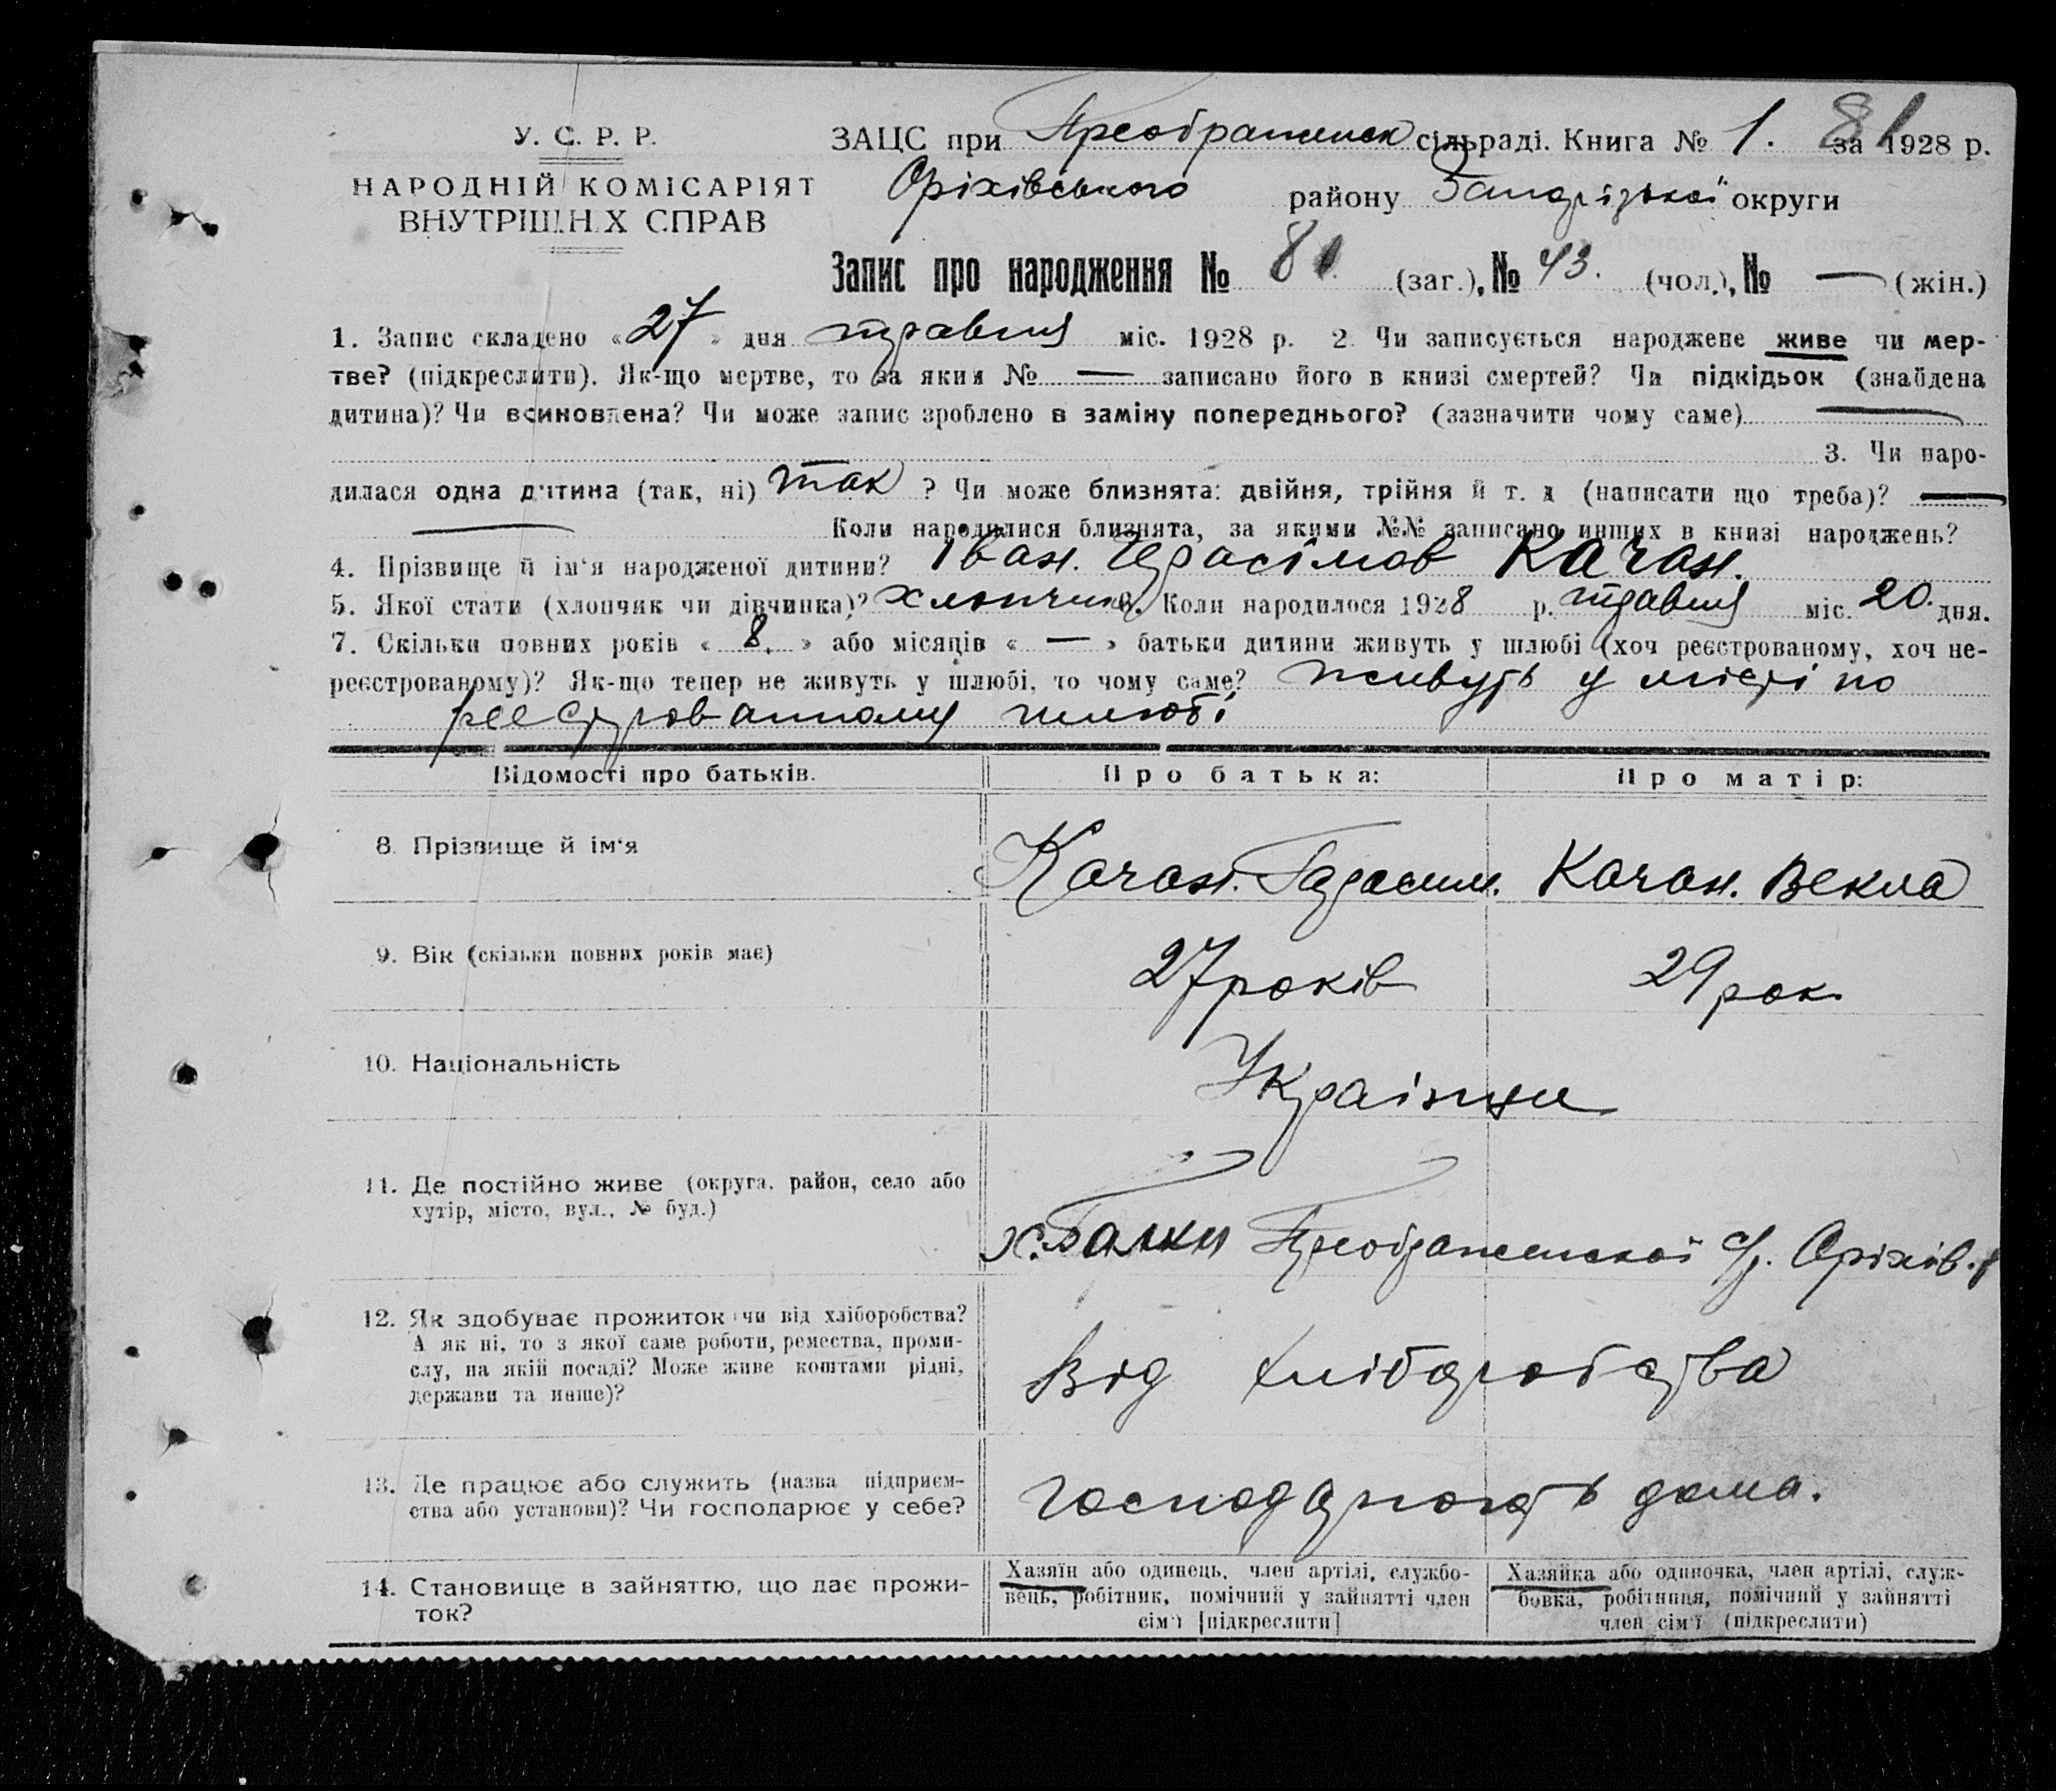 81
У. С. Р. Р.
НАРОДНІЙ КОМІСАРІЯТ
ВНУТРІШН.Х СПРАВ
ЗАЦС при Преображенск сільраді. Книга № 1. за 1928 р.
Оріхівського району Запорізької округи
Запис про народження № 81 (заг.), № 43. (чол.), № — (жін.)
1. Запис складено «27» дня травня міс. 1928 р. 2. Чи записується народжене живе чи мер-
тве? (підкреслити). Як-що мертве, то за яким № — записано його в книзі смертей? Чи підкідьок (знайдена
дитина)? Чи всиновлена? Чи може запис зроблено в заміну попереднього? (зазначити чому саме) —
3. Чи наро-
дилася одна дитина (так, ні) так ? Чи може близнята: двійня, трійня й т. д (написати що треба)? —
— Коли народилися близнята, за якими №№ записано инших в книзі народжень?
4. Прізвище й ім'я народженої дитини? Іван. Герасімов Качан.
5. Якої стати (хлопчик чи дівчинка)? хлопчик 6. Коли народилося 1928 р. травня міс. 20. дня.
7. Скільки повних років « 8. » або місяців « — » батьки дитини живуть у шлюбі (хоч реєстрованому, хоч не-
реєстрованому)? Як-що тепер не живуть у шлюбі, то чому саме? живуть у місті по
реєстрованному шлюбі
Відомості про батьків. Про батька: Про матір:
8. Прізвище й ім'я Качан. Гарасим. Качан. Векла
9. Вік (скільки повних років має) 27 років 29 рок.
10. Національність Українци
11. Де постійно живе (округа, район, село або
хутір, місто, вул., № буд.) х. Балки Преображенської с/р. Оріхів.
12. Як здобуває прожиток чи від хліборобства?
А як ні, то з якої саме роботи, ремества, проми-
слу, на якій посаді? Може живе коштами рідні,
держави та инше)? Від хліборобства
13. Де працює або служить (назва підприєм-
ства або установи)? Чи господарює у себе? господарюють дома.
14. Становище в зайняттю, що дає прожи-
ток?
Хазяїн або одинець, член артілі, службо-
вець, робітник, помічний у зайнятті член
сім'ї [підкреслити]
Хазяйка або одиночка, член артілі, служ-
бовка, робітниця, помічний у зайнятті
член сім'ї (підкреслити)